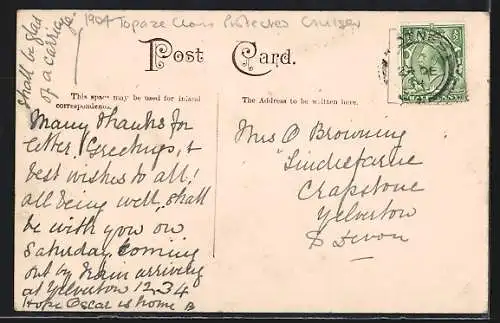 1904 Topaze Class Protected Cruiser
Shall be glad
of a carriage.
Post Card.
This space may be used for inland
correspondence.
The Address to be written here.
Many thanks for
letter, Greetings, &
best wishes to all!
all being well, shall
be with you on
Saturday, coming
out by train arriving
at Yelverton 12.34
Hope Oscar is home B
Mrs O Browning
Lindisfarne
Crapstone
Yelverton
S Devon